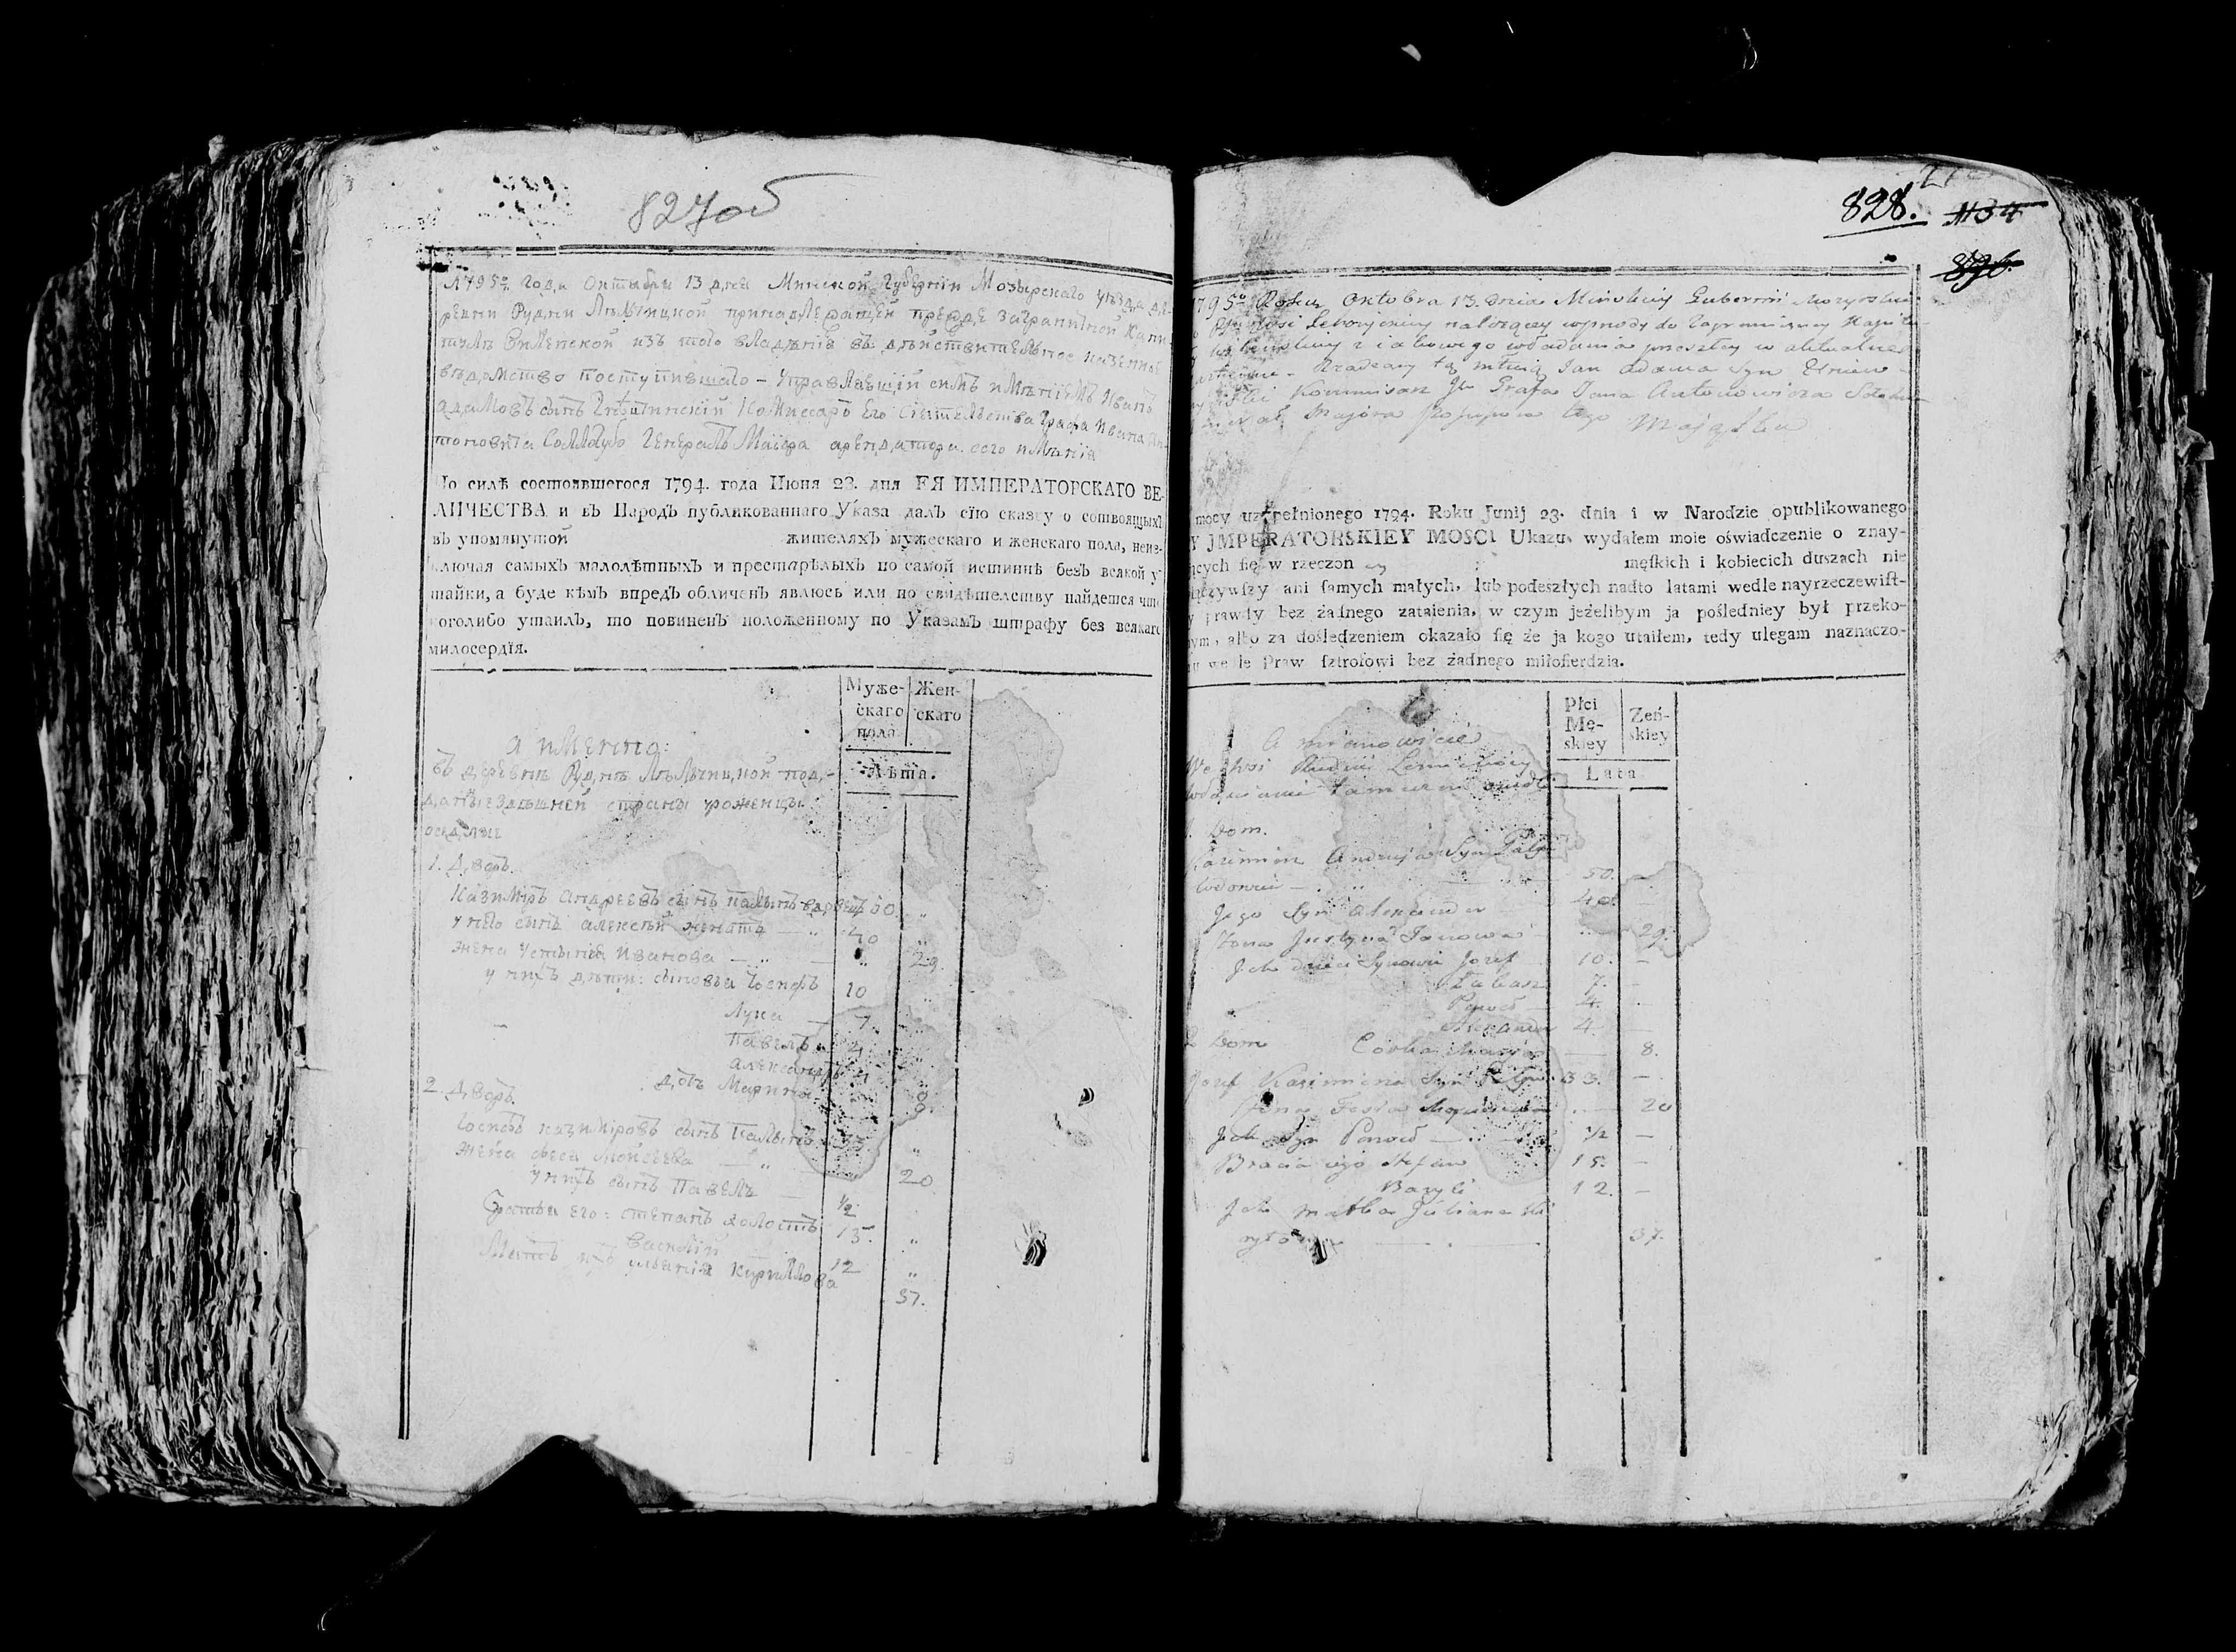 827об
1795го года Октября 13 дня Минской Губернїи Мозырскаго уезда де-
ревни Рудни Лельчицкой принадлежащей прежде заграничной Капи
тулѣ Виленской изъ того владѣнїя въ дѣйствительное казенное
вѣдомство поступившаго – Управлявшїй симъ имѣнїемъ Иванъ
адамовъ сынъ Коммиссаръ Его Сїятельства Графа Ивана Ан-
тоновича Соллогуб Генералъ Маїора арендатора сего имѣнїя
По силѣ состоявшегося 1794. года Июня 23. дня ЕЯ ИМПЕРАТОРСКАГО ВЕ-
ЛИЧЕСТВА и въ Народъ публикованнаго Указа далъ сїю сказку о состоящыхъ
въ упомянутой жителяхъ мужескаго и женскаго пола, неиз-
ключая самыхъ малолѣтныхъ и престарѣлыхъ по самой истиннѣ безъ всякой у-
тайки, а буде кѣмъ впредъ обличенъ явлюсь или по свидѣтелству найдется что
коголибо утаилъ, то повиненъ положенному по Указамъ штрафу без всякаго
милосердїя.
Муже-
скаго
пола
Жен-
скаго
Лѣта.
а имянно:
въ деревнѣ Руднѣ Лѣльчицкой под-
даныездѣшней страны уроженцы
оседлыи
1. Дворъ.
Казимїръ андреевъ сынъ 50 „
у него сынъ алексѣй женатъ — „ 40 „
жена устинїя Иванова — „ — „ 29
у нихъ дѣти: сыновья Іосифъ 10 „
Лука — 7 „
Павелъ 4 „
александръ 4 „
дочь Марина 8.
2. Дворъ.
Іосифъ казимїровъ сынъ „
жена феся Мойсеева — „ — 20
у нихъ сынъ Павелъ — 1/2
братья его: степанъ холостъ 15. „
василїй 12 „
Мать ихъ улианїя Кирилова 37.
828.
1134
896.
1795o Roku Oktobra 13. dnia Minskiey Gubernii Mozyrskie
należącey wprzody do Zagraniczney Kapitu
władania w aktualne
Jan Adama Syn
Kommisarz Jw Grafa Jana Antonowicza
Majora tego Majątku
mocy uzupełnionego 1794. Roku Junij 23. dnia i w Narodzie opublikowanego
Y JMPERATORSKIEY MOSCI Ukazu, wydałem moie oświadczenie o znay-
ących się w rzeczon ey męſkich i kobiecich duszach nie
łączywſzy ani ſamych małych, lub podeszłych nadto latami wedle nayrzeczewiſt-
y prawdy bez żadnego zataienia, w czym jeżelibym ja poſledniey był przeko-
nym, albo za doſledzeniem okazało ſię że ja kogo utaiłem, tedy ulegam naznaczo-
u wedle Praw ſztrofowi bez żadnego miłoſierdzia.
Płci
Mę-
skiey
Zeń-
skiey
Lata
A mianowicie
We Wsi Rudni
1. Dom.
Kazimierz Andrzeja Syn
wdowiec — 50. —
Jego Syn Alexander 40.
Zona Justyna Janowa 29.
Ich dzieci Synowie Jozef 10. —
Łukasz 7. —
Paweł 4.
Alexander 4. —
2 Dom Corka Marya — 8.
Jozef Kazimierza Syn 33. —
Zona Fesia — 20
Ich Syn Paweł — 1/2 —
Bracia iego Stefan 15. —
Bazyli 12. —
Ich matka Juliana Ki
ryłowa — 37.